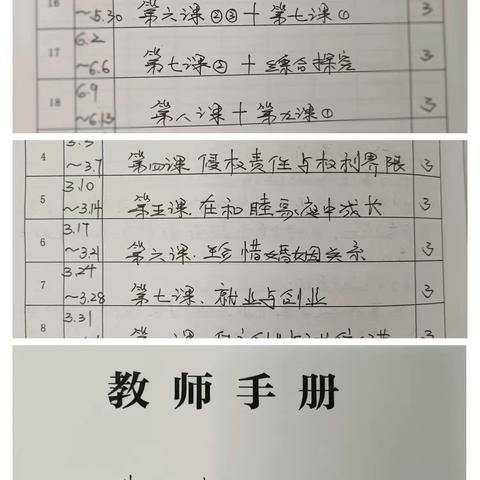 16 ~5.30 第六课②③+第七课① 3
17 6.2 ~6.6 第七课②+综合探究 3
18 6.9 ~6.13 第八课+第九课① 3
4 ~3.7 第四课 侵权责任与权利界限 3
5 3.10 ~3.14 第五课.在和睦家庭中成长 3
6 3.17 ~3.21 第六课.珍惜婚姻关系 3
7 3.24 ~3.28 第七课.就业与创业 3
8 3.31
教师手册